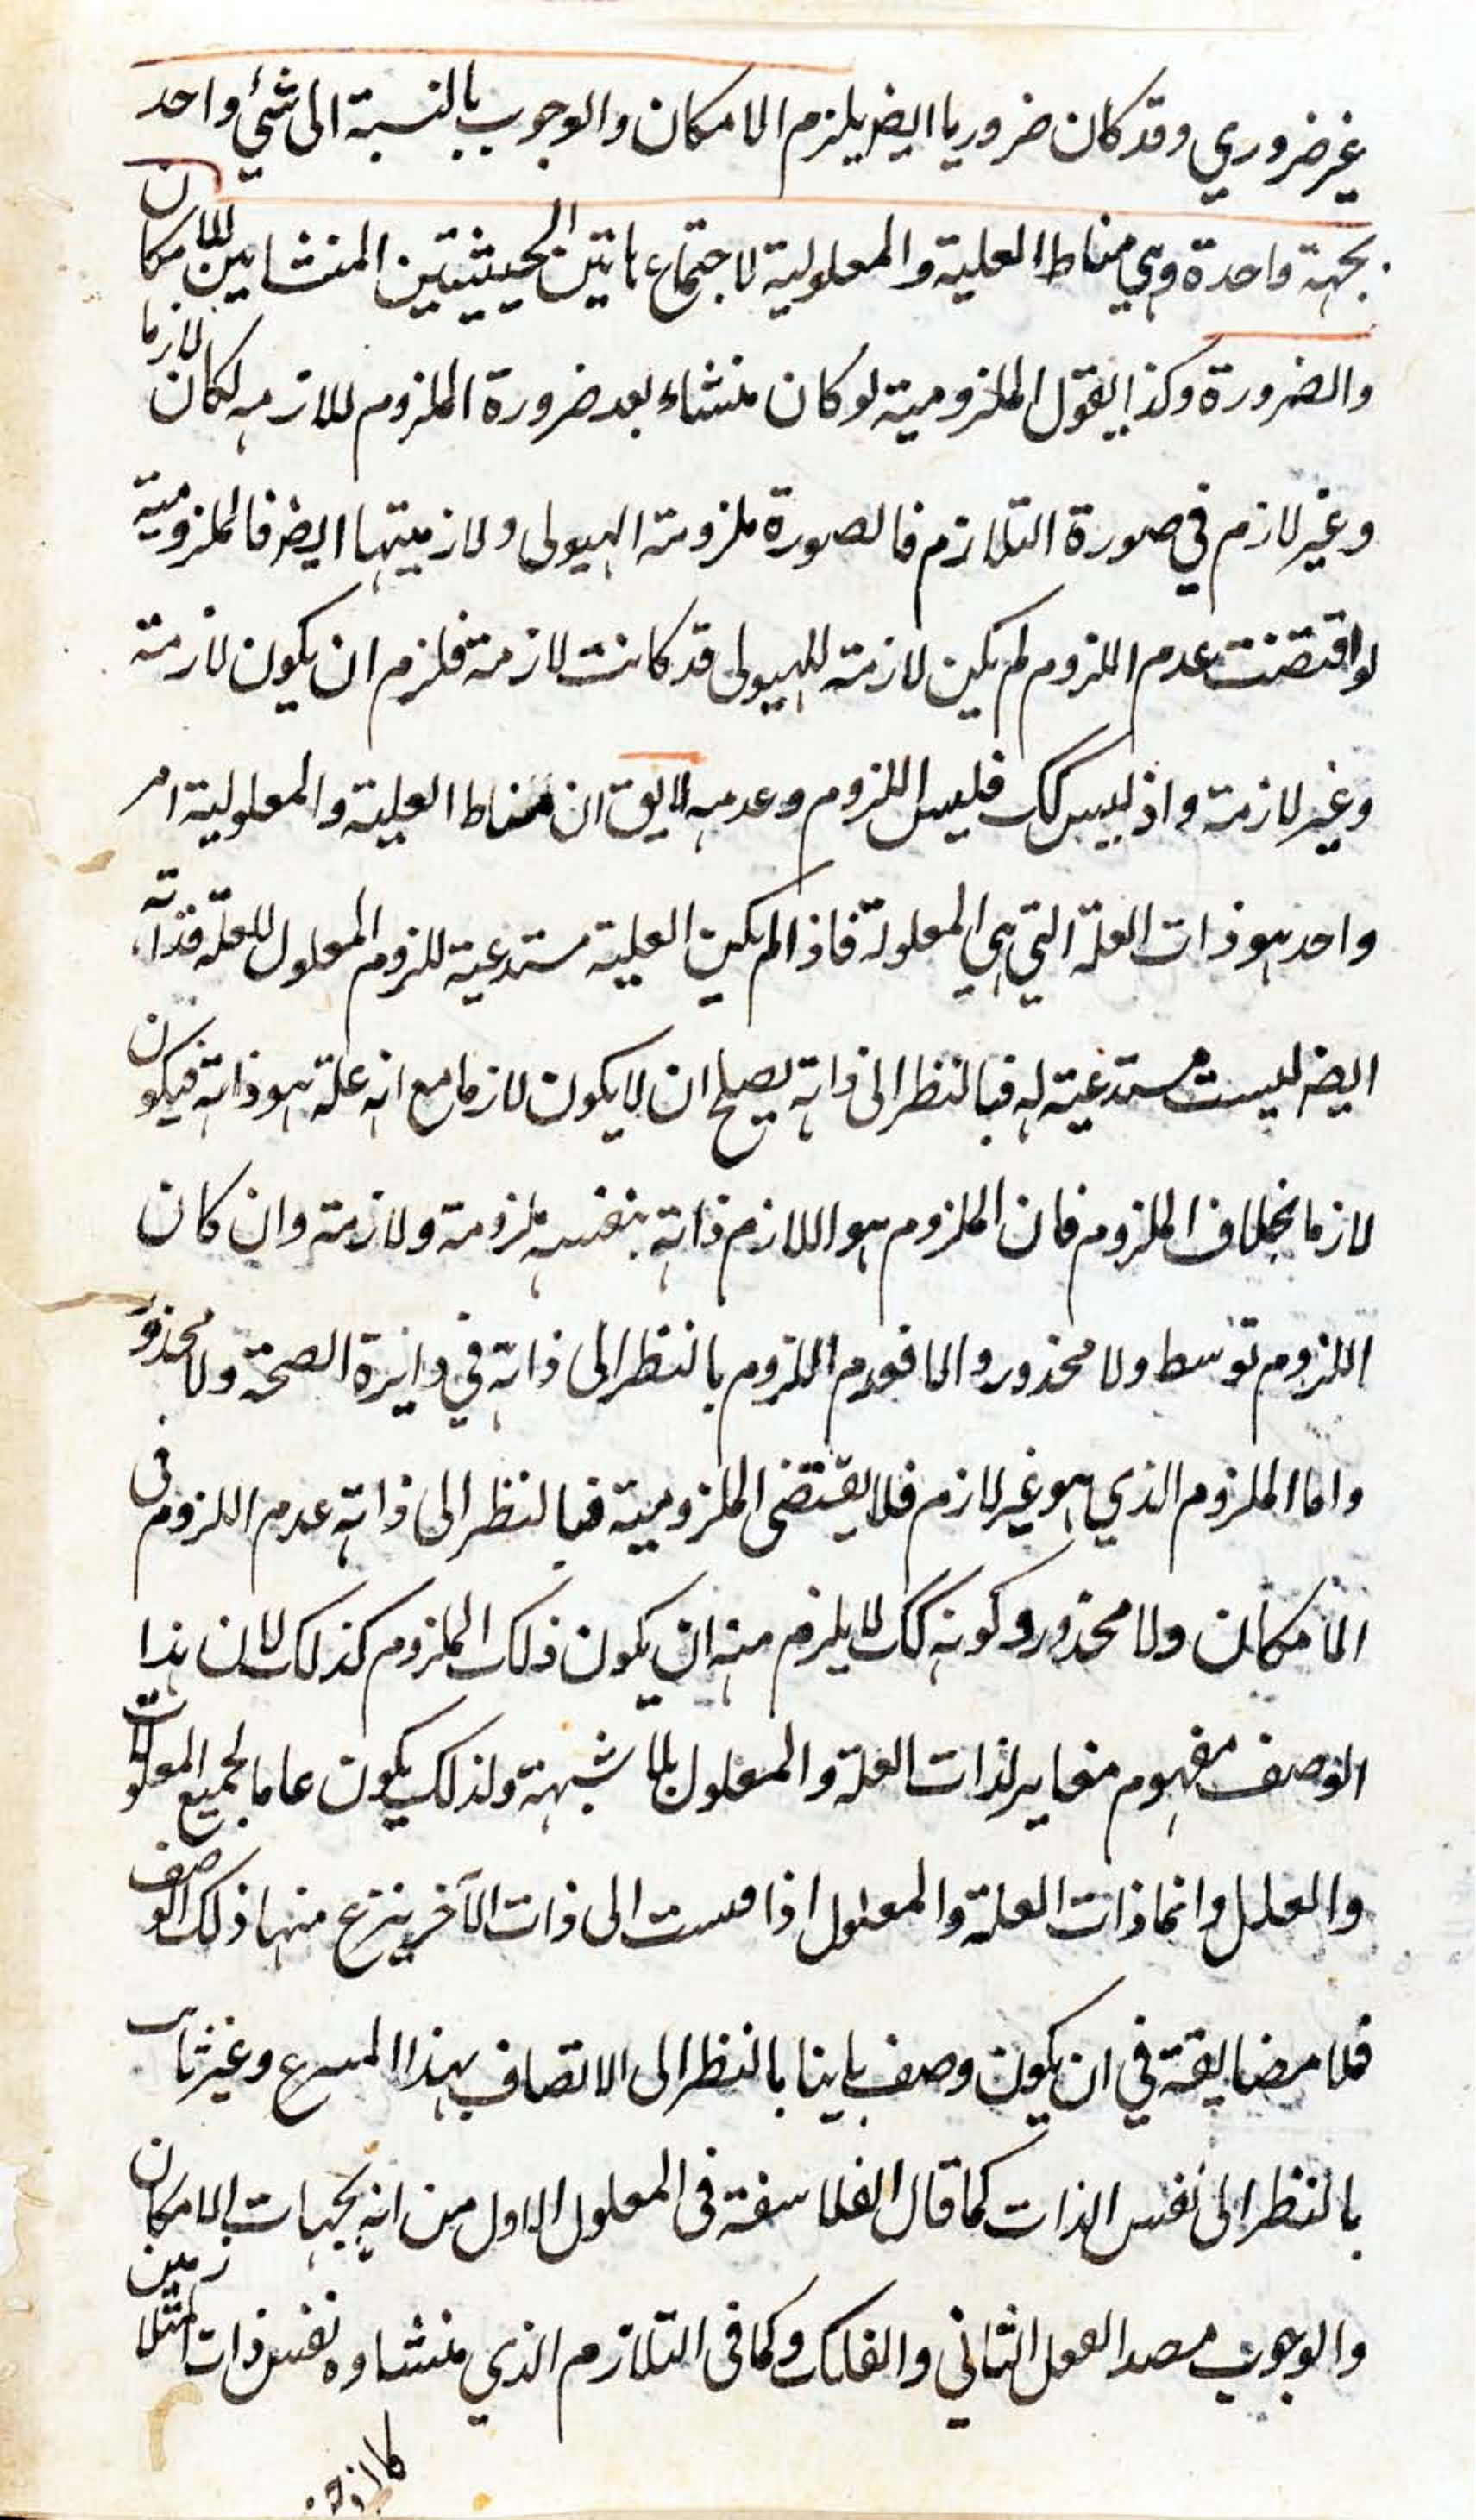 غير ضروري وقد كان ضروريا ايضر يلزم الامكان والوجوب بالنسبة الى شئ واحد
بجهة واحدة وهي مناط العلية والمعلولية لاجتماع هاتين الحيثيتين المنشايين للامكان
والضرورة وكذا يقول الملزومية لو كان منشاء لعد ضرورة الملزوم للازمه لكان لازما
وغير لازم في صورة التلازم فالصورة ملزومة الهيولى ولازميتها ايضر فالملزومية
لو اقتضت عدم اللزوم لم يكن لازمة للهيولى قد كانت لازمة فلزم ان يكون لازمة
وغير لازمة واذ ليس كك فليس اللزوم وعدمه لا يق ان مناط العلية والمعلولية امر
واحد هو ذات العلة التي هي المعلولة فاذا لم يكن العلية مستدعية للزوم المعلول للعلة فذاته
ايضر ليست مستدعية له فبالنظر الى ذاته يصلح ان لا يكون لازما مع انه علة هو ذاته فيكون
لازما بخلاف الملزوم فان الملزوم هو اللازم ذاته بنفسه ملزومة ولازمة وان كان
اللزوم توسط ولا محذور والا فعدم اللزوم بالنظر الى ذاته في دايرة الصحة ولا محذور
واما الملزوم الذي هو غير لازم فلا يقتضى الملزومية فبالنظر الى ذاته عدم اللزوم فى
الامكان ولا محذور وكونه كك لا يلزم منه ان يكون ذلك الملزوم كذلك لان هذا
الوصف مفهوم مغاير لذات العلة والمعلول بلا شبهة ولذلك يكون عاما لجميع المعلولات
والعلل وانما ذات العلة والمعلول اذا قيست الى ذات الآخر ينزع منها ذلك الوصف
فلا مضايقة في ان يكون وصف بالنظر الى الاتصاف بهذا وغير ثابت
بالنظر الى نفس الذات كما قال الفلاسفة فى المعلول الاول من انه بجهات الامكان
والوجوب مصدر العقل الثاني والفلك وكما فى التلازم الذي منشاوه نفس ذات المتلازمين